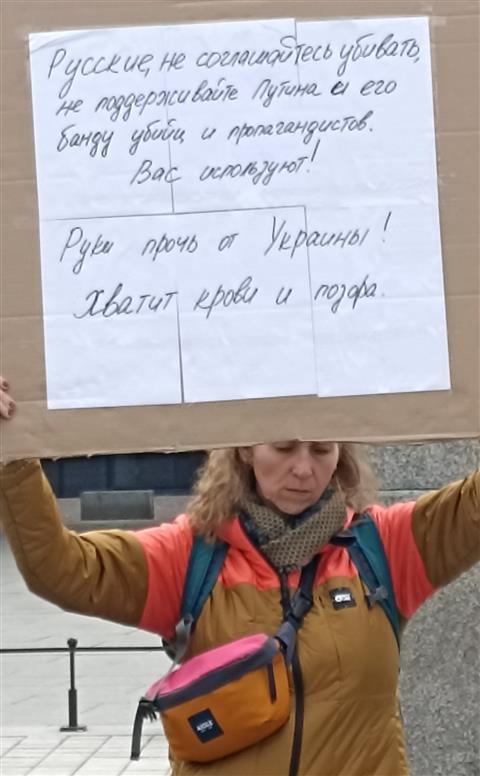 Русские, не соглашайтесь убивать,
не поддерживайте Путина и его
банду убийц и пропагандистов.
Вас используют!
Руки прочь от Украины!
Хватит крови и позора.